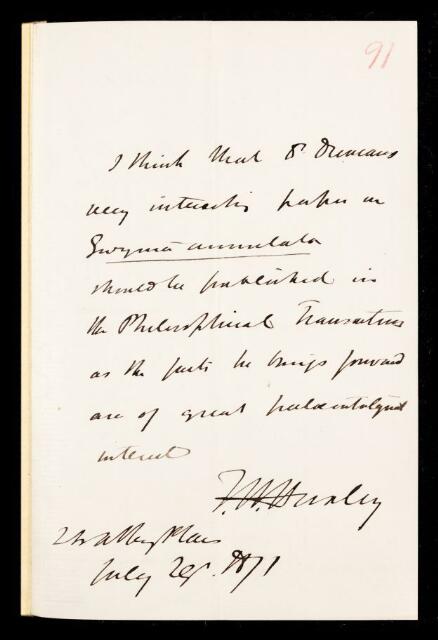 91
I think that Dr Duncans
very interesting paper on
Guynia annulata
should be published in
the Philosophical Transactions
as the facts he brings forward
are of great palaeontological
interest
T. H. Huxley
Abbey Place
July 1871